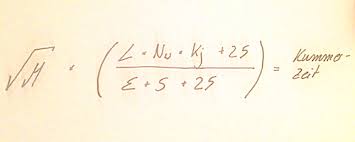 √M · (L · Nu · Kj + 25 / E + S + 25) = Kummer-
Zeit